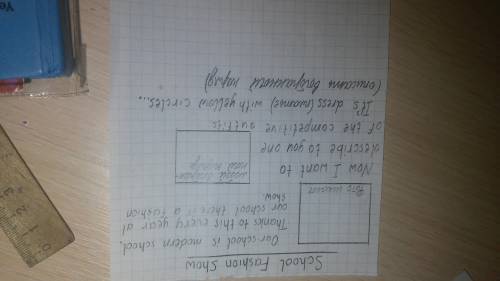 School Fashion Show
Our school is modern school.
Thanks to this every year at
our school there is a fashion
show.
Фото
Now I want to
describe to you one
of the competitive outfits
It's dress (платье) with yellow circles...
(описать выбранный наряд)
Ye